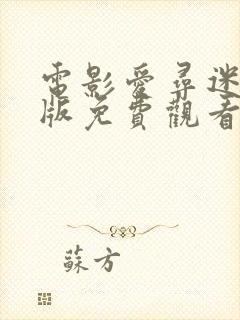 電影愛尋迷
版免費觀看
蘇方